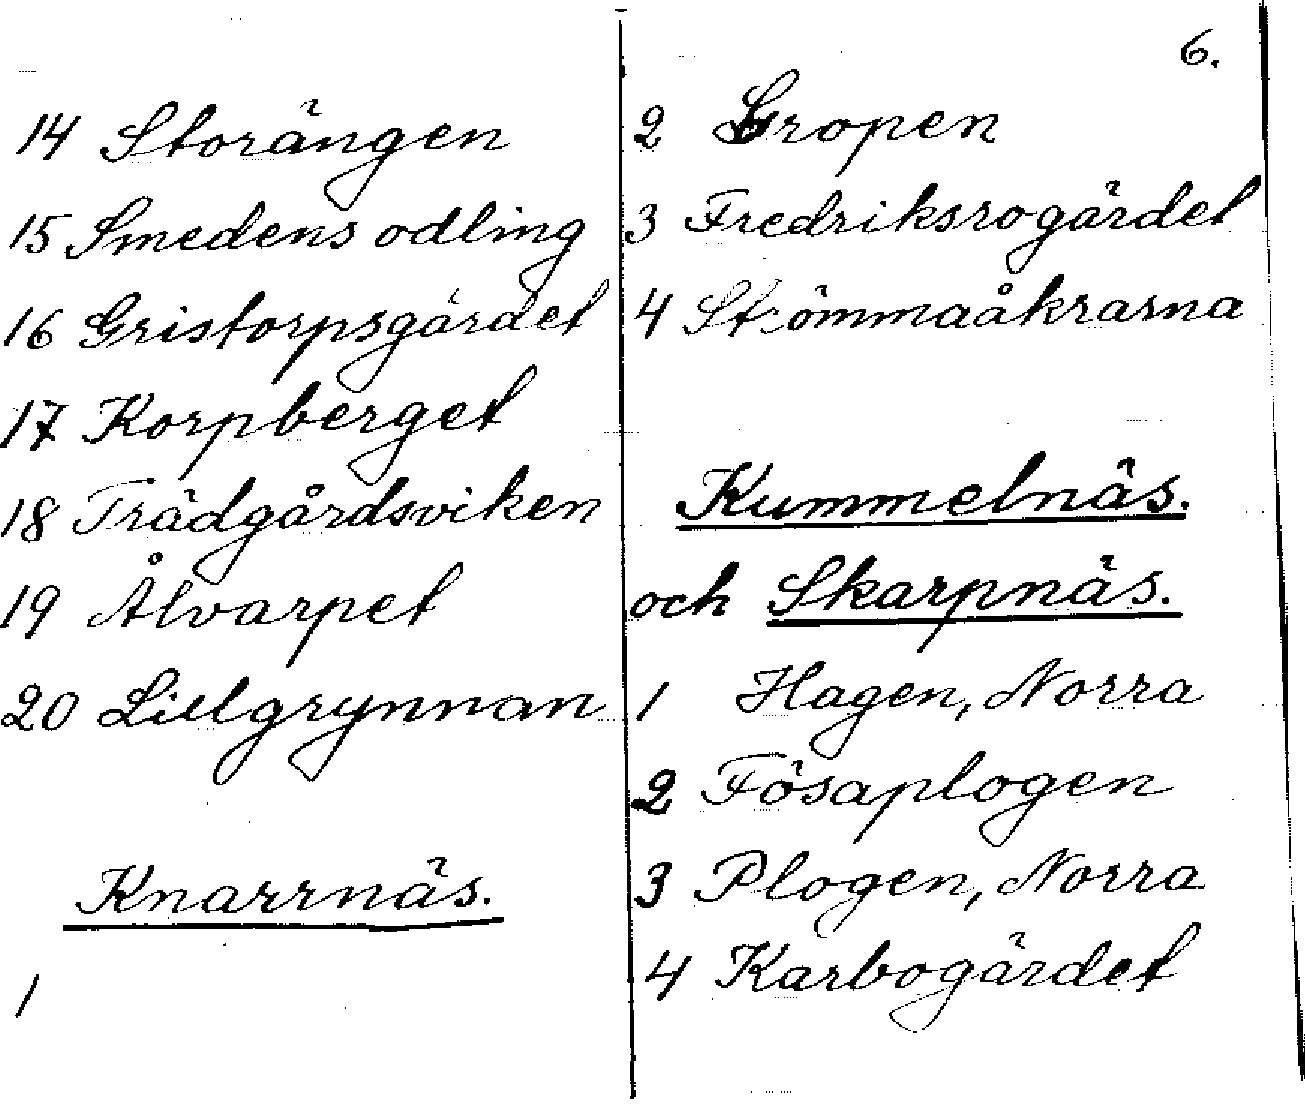 14 Storängen
15 Smedens odling
16 Gristorpsgärdet
17 Korpberget
18 Trädgårdsviken
19 Ålvarpet
20 Lillgrynnan
Knarrnäs.
1
6.
2 Gropen
3 Fredriksrogärdet
4 Strömmaåkrarna
Kummelnäs.
och Skarpnäs.
1 Hagen, Norra
2 Fösaplogen
3 Plogen, Norra
4 Karbogärdet